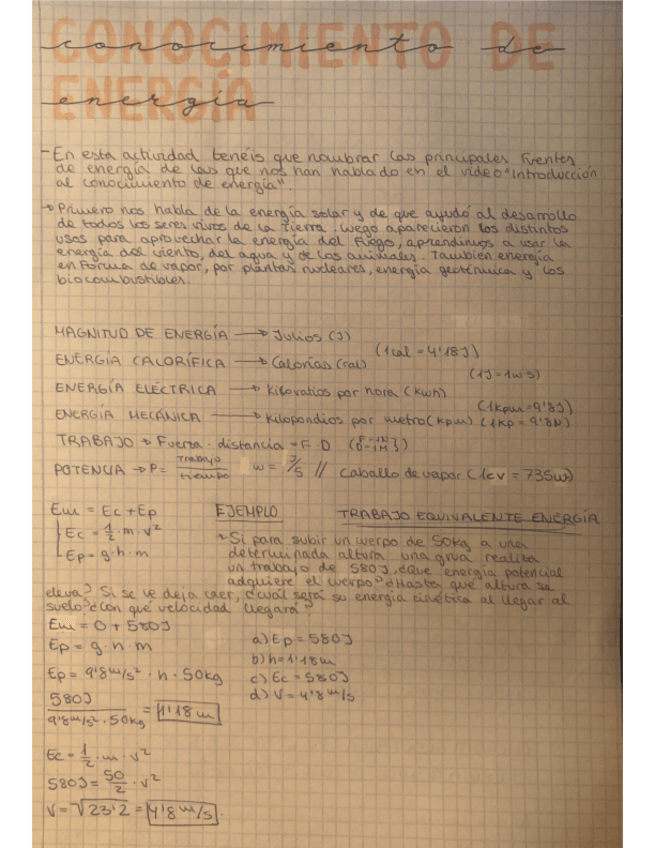 CONOCIMIENTO DE
conocimiento de
ENERGÍA
energía
- En esta actividad tenéis que nombrar las principales fuentes
de energía de las que nos han hablado en el vídeo "Introducción
al conocimiento de energía".
→ Primero nos habla de la energía solar y de que ayudó al desarrollo
de todos los seres vivos de la Tierra. Luego aparecieron los distintos
usos para aprovechar la energía del fuego, aprendimos a usar la
energía del viento, del agua y de los animales. También energía
en forma de vapor, por plantas nucleares, energía geotérmica y los
biocombustibles.
MAGNITUD DE ENERGÍA → Julios (J)
(1cal = 4'18J)
ENERGÍA CALORÍFICA → Calorías (cal)
(1J = 1w·s)
ENERGÍA ELÉCTRICA → Kilovatios por hora (Kwh)
(1kpm = 9'8J)
ENERGÍA MECÁNICA → Kilopondios por metro (kpm) (1kp = 9'8N)
TRABAJO → Fuerza · distancia = F · D
POTENCIA → P = Trabajo/tiempo w = J/s // Caballo de vapor (1cv = 735w)
Em = Ec + Ep EJEMPLO TRABAJO EQUIVALENTE ENERGÍA
Ec = 1/2 · m · v²
Ep = g · h · m
→ Si para subir un cuerpo de 50kg a una
determinada altura una grúa realiza
un trabajo de 580J, ¿Que energía potencial
adquiere el cuerpo? ¿Hasta que altura se
eleva? Si se le deja caer, ¿cuál será su energía cinética al llegar al
suelo? ¿Con qué velocidad llegará?
Em = 0 + 580J
Ep = g · h · m
Ep = 9'8 m/s² · h · 50kg
580J / 9'8 m/s² · 50kg = 1'18 m
a) Ep = 580J
b) h = 1'18m
c) Ec = 580J
d) V = 4'8 m/s
Ec = 1/2 · m · v²
580J = 50/2 · v²
V = √23'2 = 4'8 m/s.